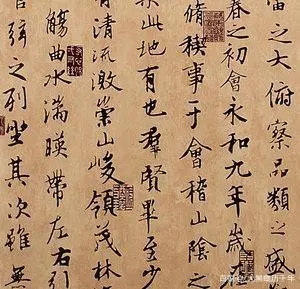 宙之大俯察品類之盛
春之初會永和九年歲
脩稧事于會稽山陰之
此地有也羣賢畢至少
有清流激崇山峻領茂林
觴曲水湍暎帶左右引
弦之列坐其次雖無